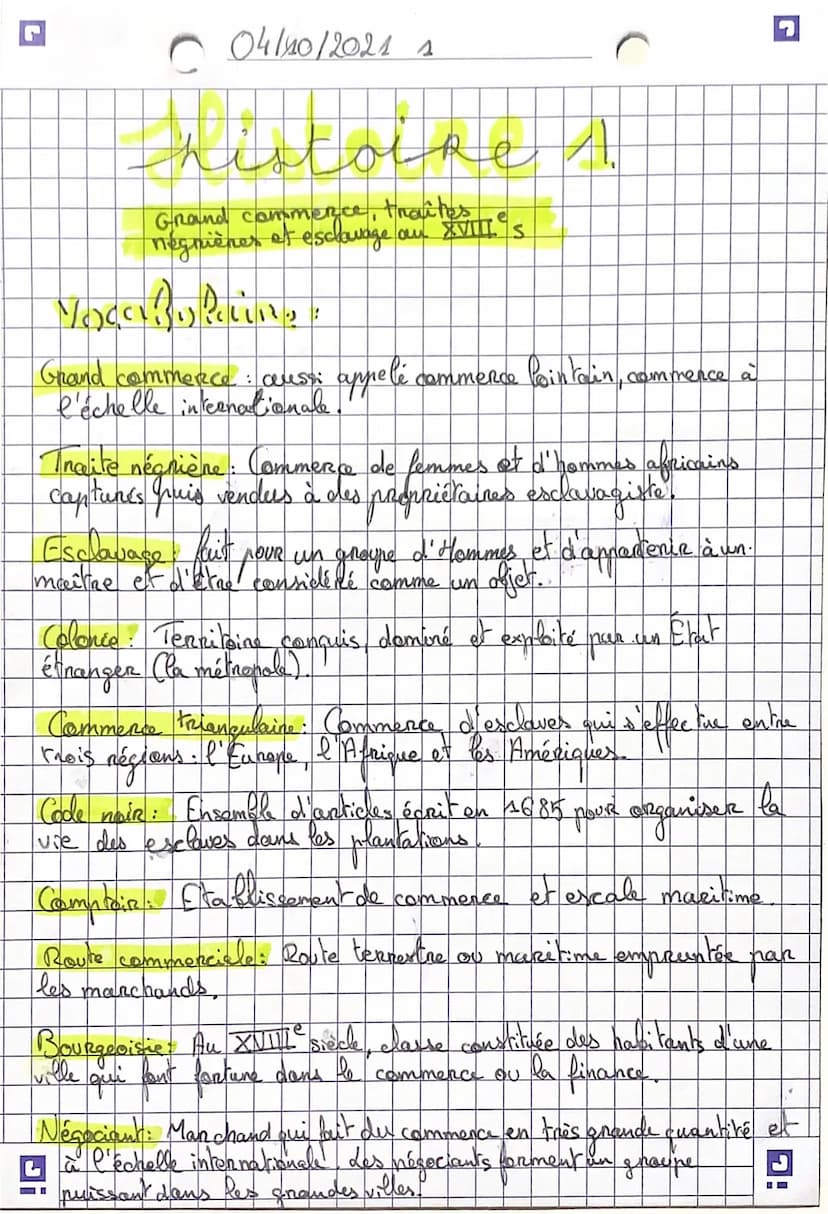 04/10/2021 1
Histoire 1.
Grand commerce, traites
négrières et esclavage au XVIIIe s
Vocabulaire :
Grand commerce : aussi appelé commerce lointain, commerce à
l'échelle internationale.
Traite négrière : Commerce de femmes et d'hommes africains
capturés puis vendus à des propriétaires esclavagiste.
Esclavage : fait pour un groupe d'Hommes et d'appartenir à un
maître et d'être considéré comme un objet.
Colonie : Territoire conquis, dominé et exploité par un État
étranger (la métropole).
Commerce triangulaire : Commerce d'esclaves qui s'effectue entre
trois régions : l'Europe, l'Afrique et les Amériques.
Code noir : Ensemble d'articles écrit en 1685 pour organiser la
vie des esclaves dans les plantations.
Comptoir : Etablissement de commerce et escale maritime.
Route commerciale : Route terrestre ou maritime empruntée par
les marchands.
Bourgeoisie : Au XVIIIe siècle, classe constituée des habitants d'une
ville qui font fortune dans le commerce ou la finance.
Négociant : Marchand qui fait du commerce en très grande quantité et
à l'échelle internationale, des négociants forment un groupe
puissant dans les grandes villes.